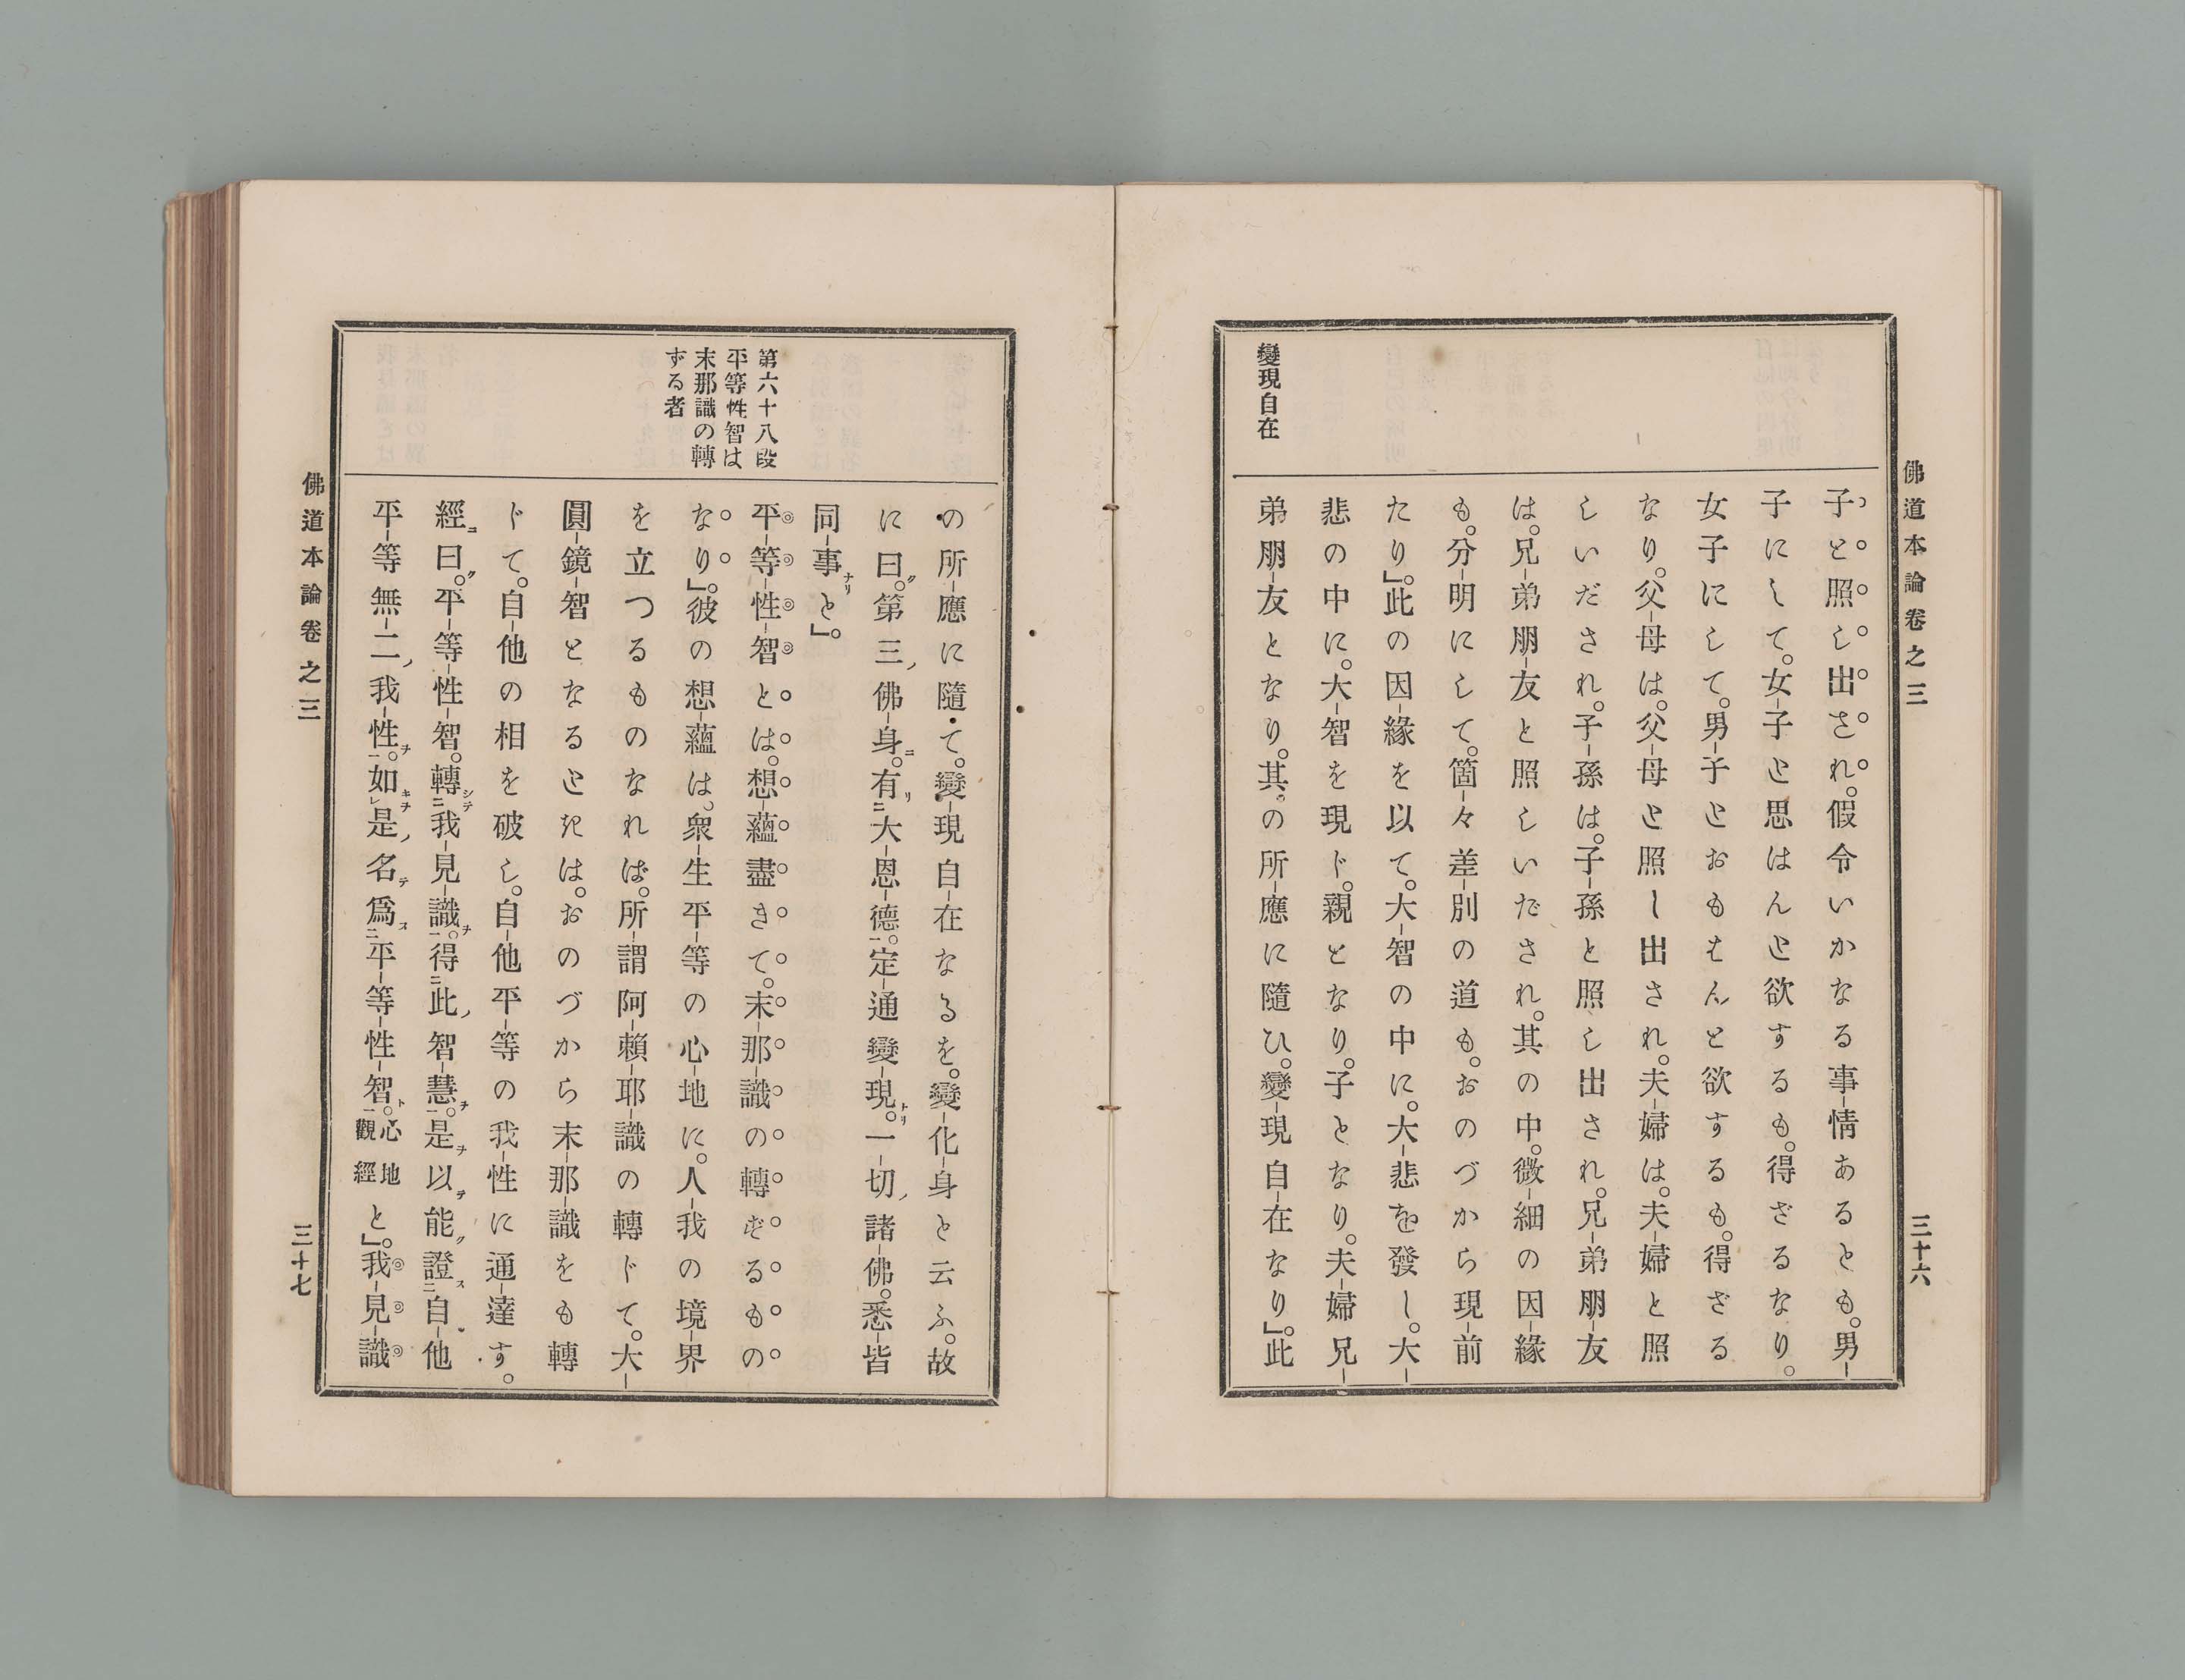 佛道本論卷之三
三十六
變現自在
子と照し出され。假令いかなる事情あるとも。男
子にして。女子と思はんと欲するも。得ざるなり。
女子にして。男子とおもはんと欲するも。得ざる
なり。父母は。父母と照し出され。夫婦は。夫婦と照
しいだされ。子孫は。子孫と照し出され。兄弟朋友
は。兄弟朋友と照しいだされ。其の中。微細の因緣
も。分明にして。箇々差別の道も。おのづから現前
たり』。此の因緣を以て。大智の中に。大悲を發し。大
悲の中に。大智を現じ。親となり。子となり。夫婦兄
弟朋友となり。其の所應に隨ひ。變現自在なり』。此
の所應に隨て。變現自在なるを。變化身と云ふ。故
に曰ク。第三ノ佛身ニ。有リ二大恩德一。定通變現ナリ。一切ノ諸佛。悉皆
同事ナリと』。
第六十八段
平等性智は
末那識の轉
ずる者
平等性智とは。想蘊盡きて。末那識の轉ずるもの
なり』。彼の想蘊は。衆生平等の心地に。人我の境界
を立つるものなれば。所謂阿賴耶識の轉じて。大
圓鏡智となるときは。おのづから末那識をも轉
じて。自他の相を破し。自他平等の我性に通達す。
經ニ曰ク。平等性智。轉シテ二我見識ヲ一。得二此ノ智慧ヲ一。是ヲ以テ能ク證ス二自他
平等無二ノ我性ヲ一。如キヲレ是ノ名テ爲ス二平等性智ト一。心地觀經と』。我見識
佛道本論卷之三
三十七